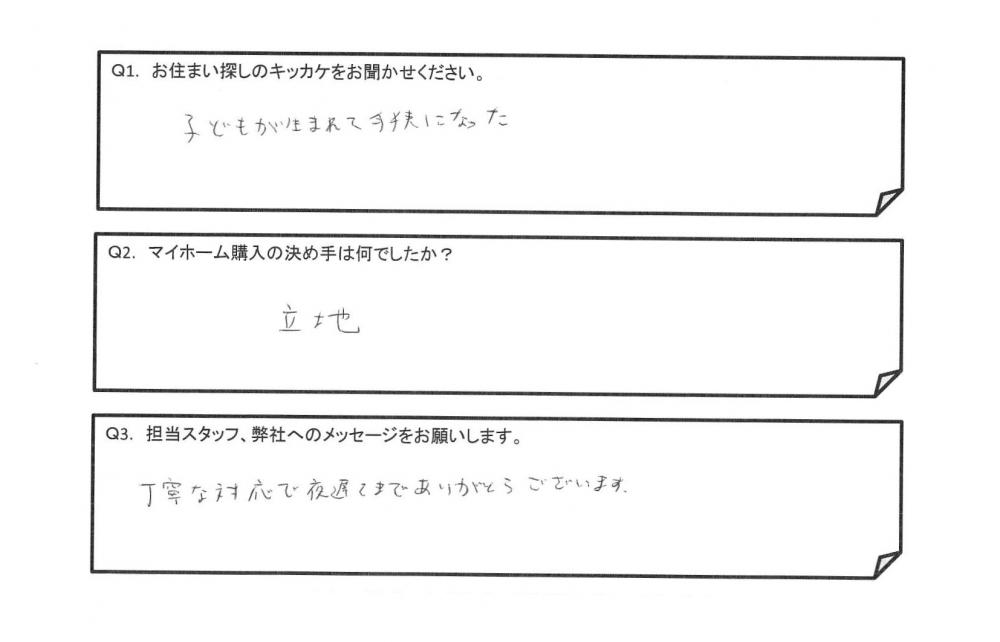 Q1. お住まい探しのキッカケをお聞かせください。
子どもが生まれて手狭になった
Q2. マイホーム購入の決め手は何でしたか？
立地
Q3. 担当スタッフ、弊社へのメッセージをお願いします。
丁寧な対応で夜遅くまでありがとうございます。